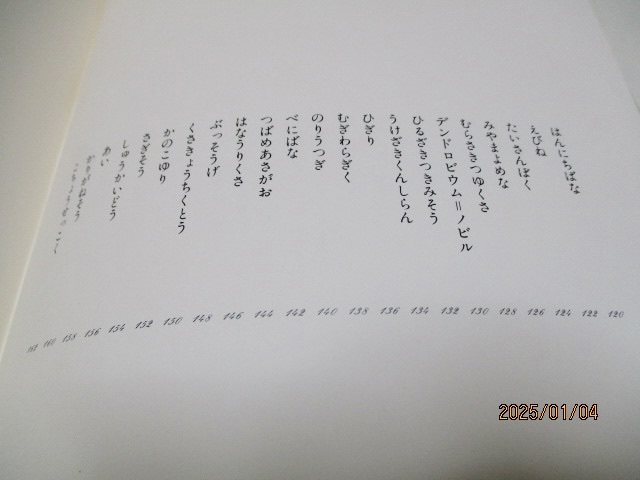 はんにちばな 120
えびね 122
たいさんぼく 124
みやまよめな 126
むらさきつゆくさ 128
デンドロビウム＝ノビル 130
ひるざきつきみそう 132
うけざきくんしらん 134
ひぎり 136
むぎわらぎく 138
のりうつぎ 140
べにばな 142
つばめあさがお 144
はなうりくさ 146
ぶっそうげ 148
くさきょうちくとう 150
かのこゆり 152
さぎそう 154
しゅうかいどう 156
あい 158
160
2025/01/04